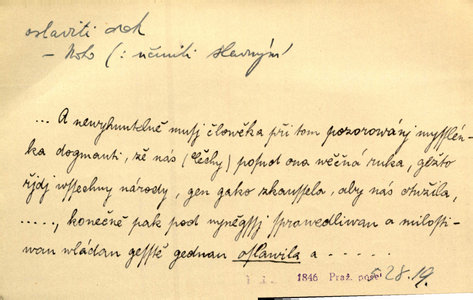 oslaviti dok
– koho (: učiniti slavným
... A newyhnutelně musj člowěka při tom pozorowánj myšslén-
ka dogmauti, že nás (Čěchy) posud ona wěčná ruka, gežto
řjdj wssechny národy, gen gako zkaussela, aby nás otužila,
....., konečně pak pod nyněgssj sprawedliwau a milosti-
wau wládau gesstě gednau oslawila a . . . . . .
1846 Praž. pos. 28.19